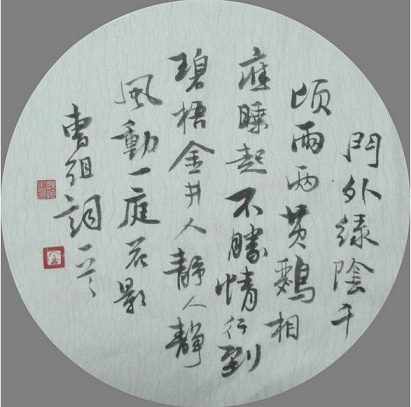 門外绿陰千
頃兩兩黄鸝相
應睡起不勝情行到
碧梧金井人靜人靜
風動一庭花影
曹組詞一首